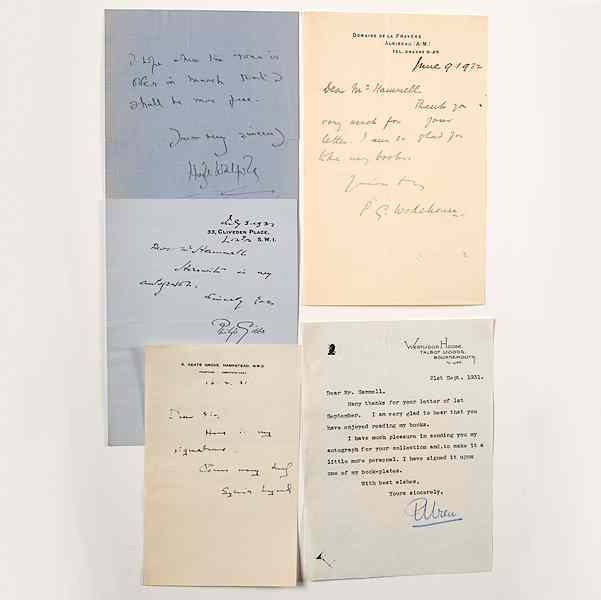 I hope when the
over in March that I
shall be more free.
Yours very sincerely
Hugh Walpole
July 3. 1932
33, CLIVEDEN PLACE,
London S.W.1.
Dear Mr Hammell
Herewith is my
autograph.
Sincerely Yours
Philip Gibbs
DOMAINE DE LA FRAYÈRE
AURIBEAU (A-M)
June 9. 1932
Dear Mr Hammell.
Thank you
very much for your
letter. I am so glad you
like my books.
Yours truly
P. G. Wodehouse.
KEATS GROVE, HAMPSTEAD, N.W.3
31
Dear Sir,
Here is my
signature.
Yours very truly
Sylvia Lynd
WESTWOOD HOUSE,
TALBOT WOODS,
BOURNEMOUTH
21st Sept. 1931.
Dear Mr. Hammell,
Many thanks for your letter of 1st
September. I am very glad to hear that you
have enjoyed reading my books.
I have much pleasure in sending you my
autograph for your collection and,to make it a
little more personal, I have signed it upon
one of my book-plates.
With best wishes,
Yours sincerely,
P C Wren